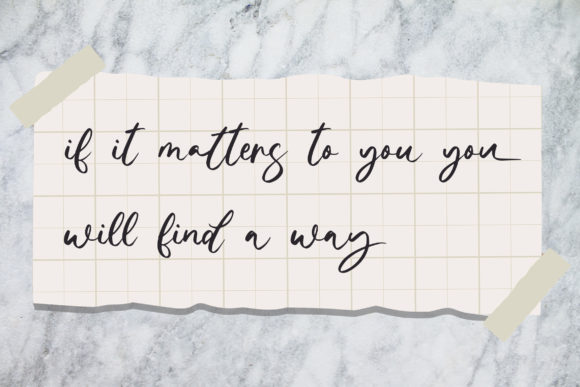 if it matters to you you
will find a way